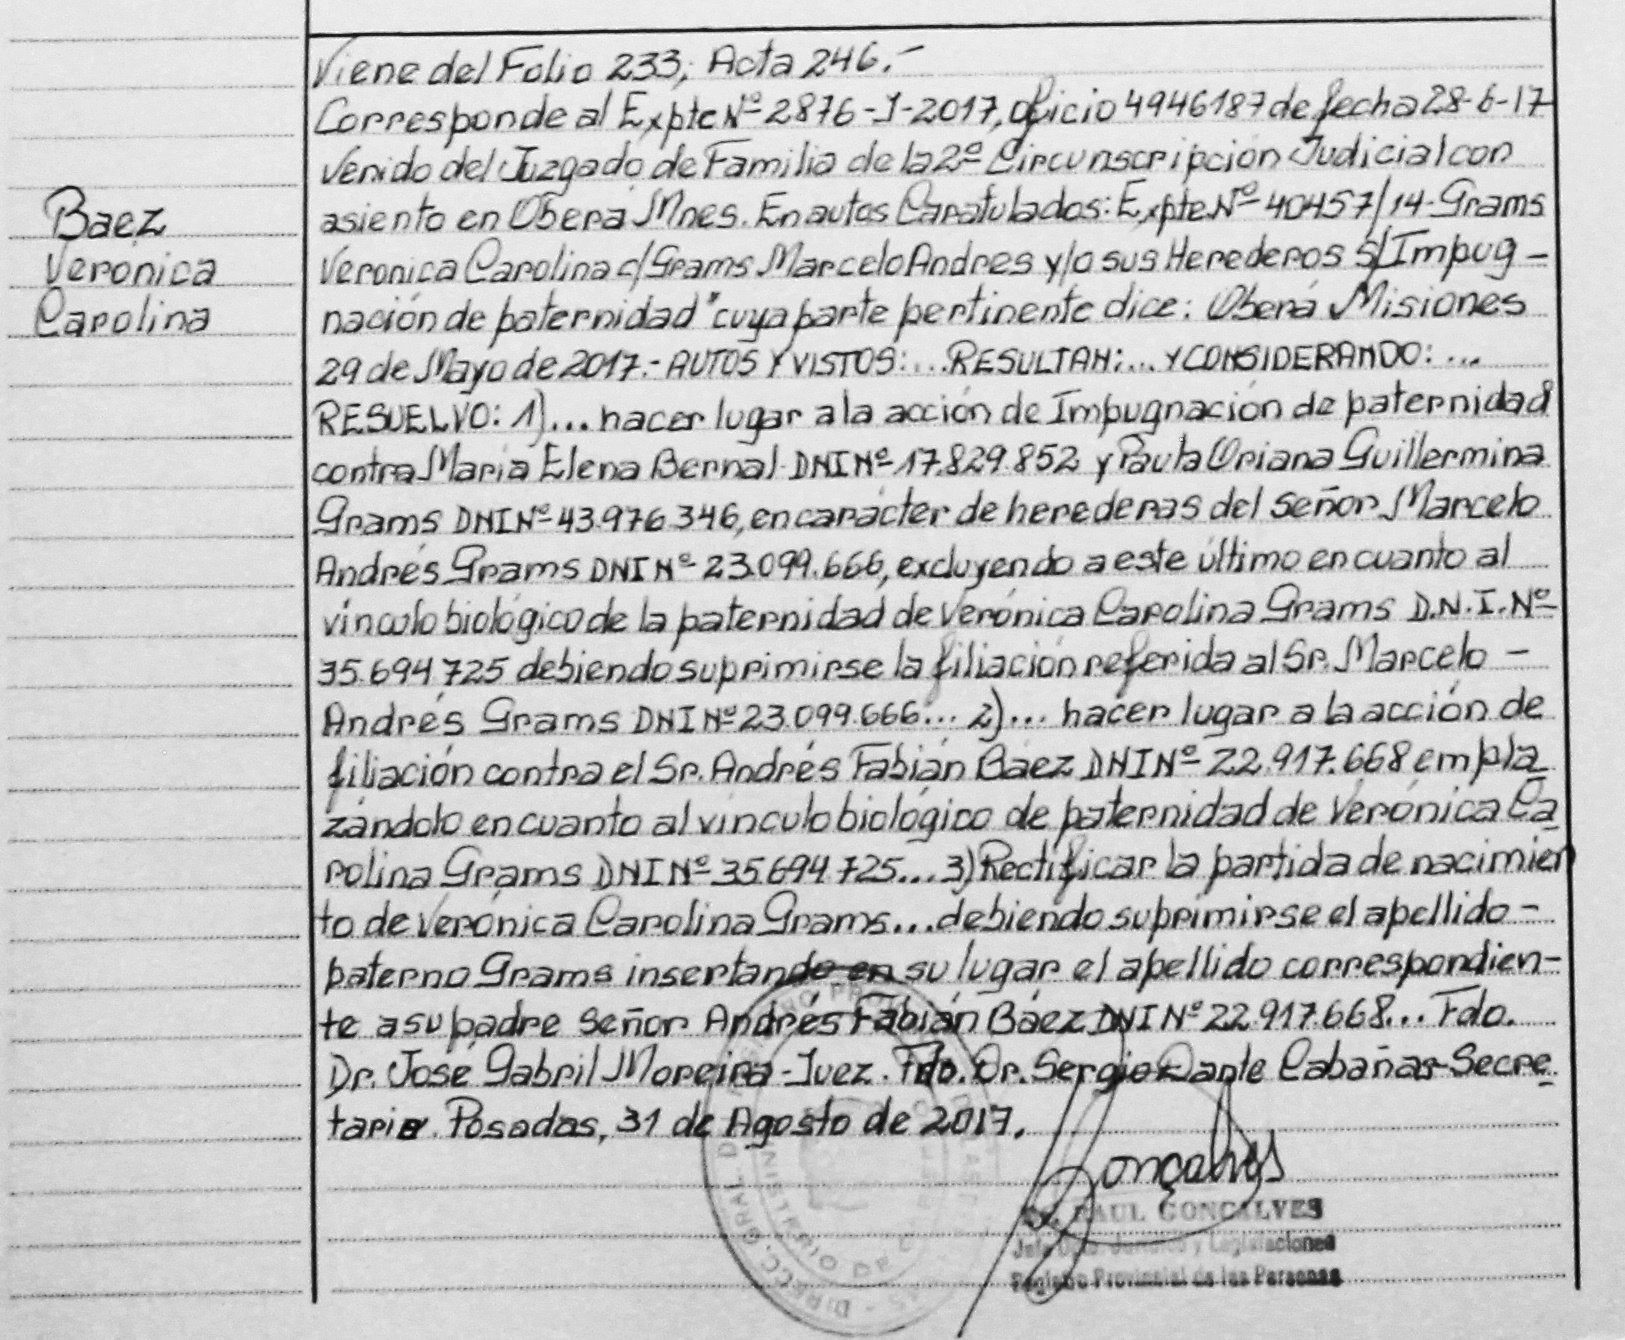 Viene del Folio 233, Acta 246.-
Corresponde al Expte Nº 2876-J-2017, oficio 4946187 de fecha 28-6-17
venido del Juzgado de Familia de la 2º Circunscripción Judicial con
asiento en Oberá Mnes. En autos Caratulados: Expte Nº 40457/14-Grams
Veronica Carolina c/Grams Marcelo Andres y/o sus Herederos s/Impug-
nación de paternidad" cuya parte pertinente dice: Oberá Misiones
29 de Mayo de 2017.- AUTOS Y VISTOS:...RESULTAN:... Y CONSIDERANDO:...
RESUELVO: 1)... hacer lugar a la acción de Impugnación de paternidad
contra Maria Elena Bernal DNI Nº 17.829.852 y Paula Oriana Guillermina
Grams DNI Nº 43.976.346, en carácter de herederas del señor Marcelo
Andrés Grams DNI Nº 23.099.666, excluyendo a este último en cuanto al
vínculo biológico de la paternidad de Verónica Carolina Grams D.N.I. Nº
35.694.725 debiendo suprimirse la filiación referida al Sr. Marcelo -
Andrés Grams DNI Nº 23.099.666... 2)... hacer lugar a la acción de
filiación contra el Sr. Andrés Fabián Báez DNI Nº 22.917.668 empla_
zándolo en cuanto al vínculo biológico de paternidad de Verónica Ca_
rolina Grams DNI Nº 35.694.725... 3) Rectificar la partida de nacimien
to de Verónica Carolina Grams...debiendo suprimirse el apellido -
paterno Grams insertando en su lugar el apellido correspondien-
te a su padre señor Andrés Fabián Báez DNI Nº 22.917.668... Fdo.
Dr. José Gabril Moreira-Juez. Fdo. Dr. Sergio Dante Cabañas-Secre_
tario. Posadas, 31 de Agosto de 2017.
Baez
Veronica
Carolina
Gonçalves
RAUL GONCALVES
Jefe Dpto. Jurídico y Legislaciones
Registro Provincial de las Personas